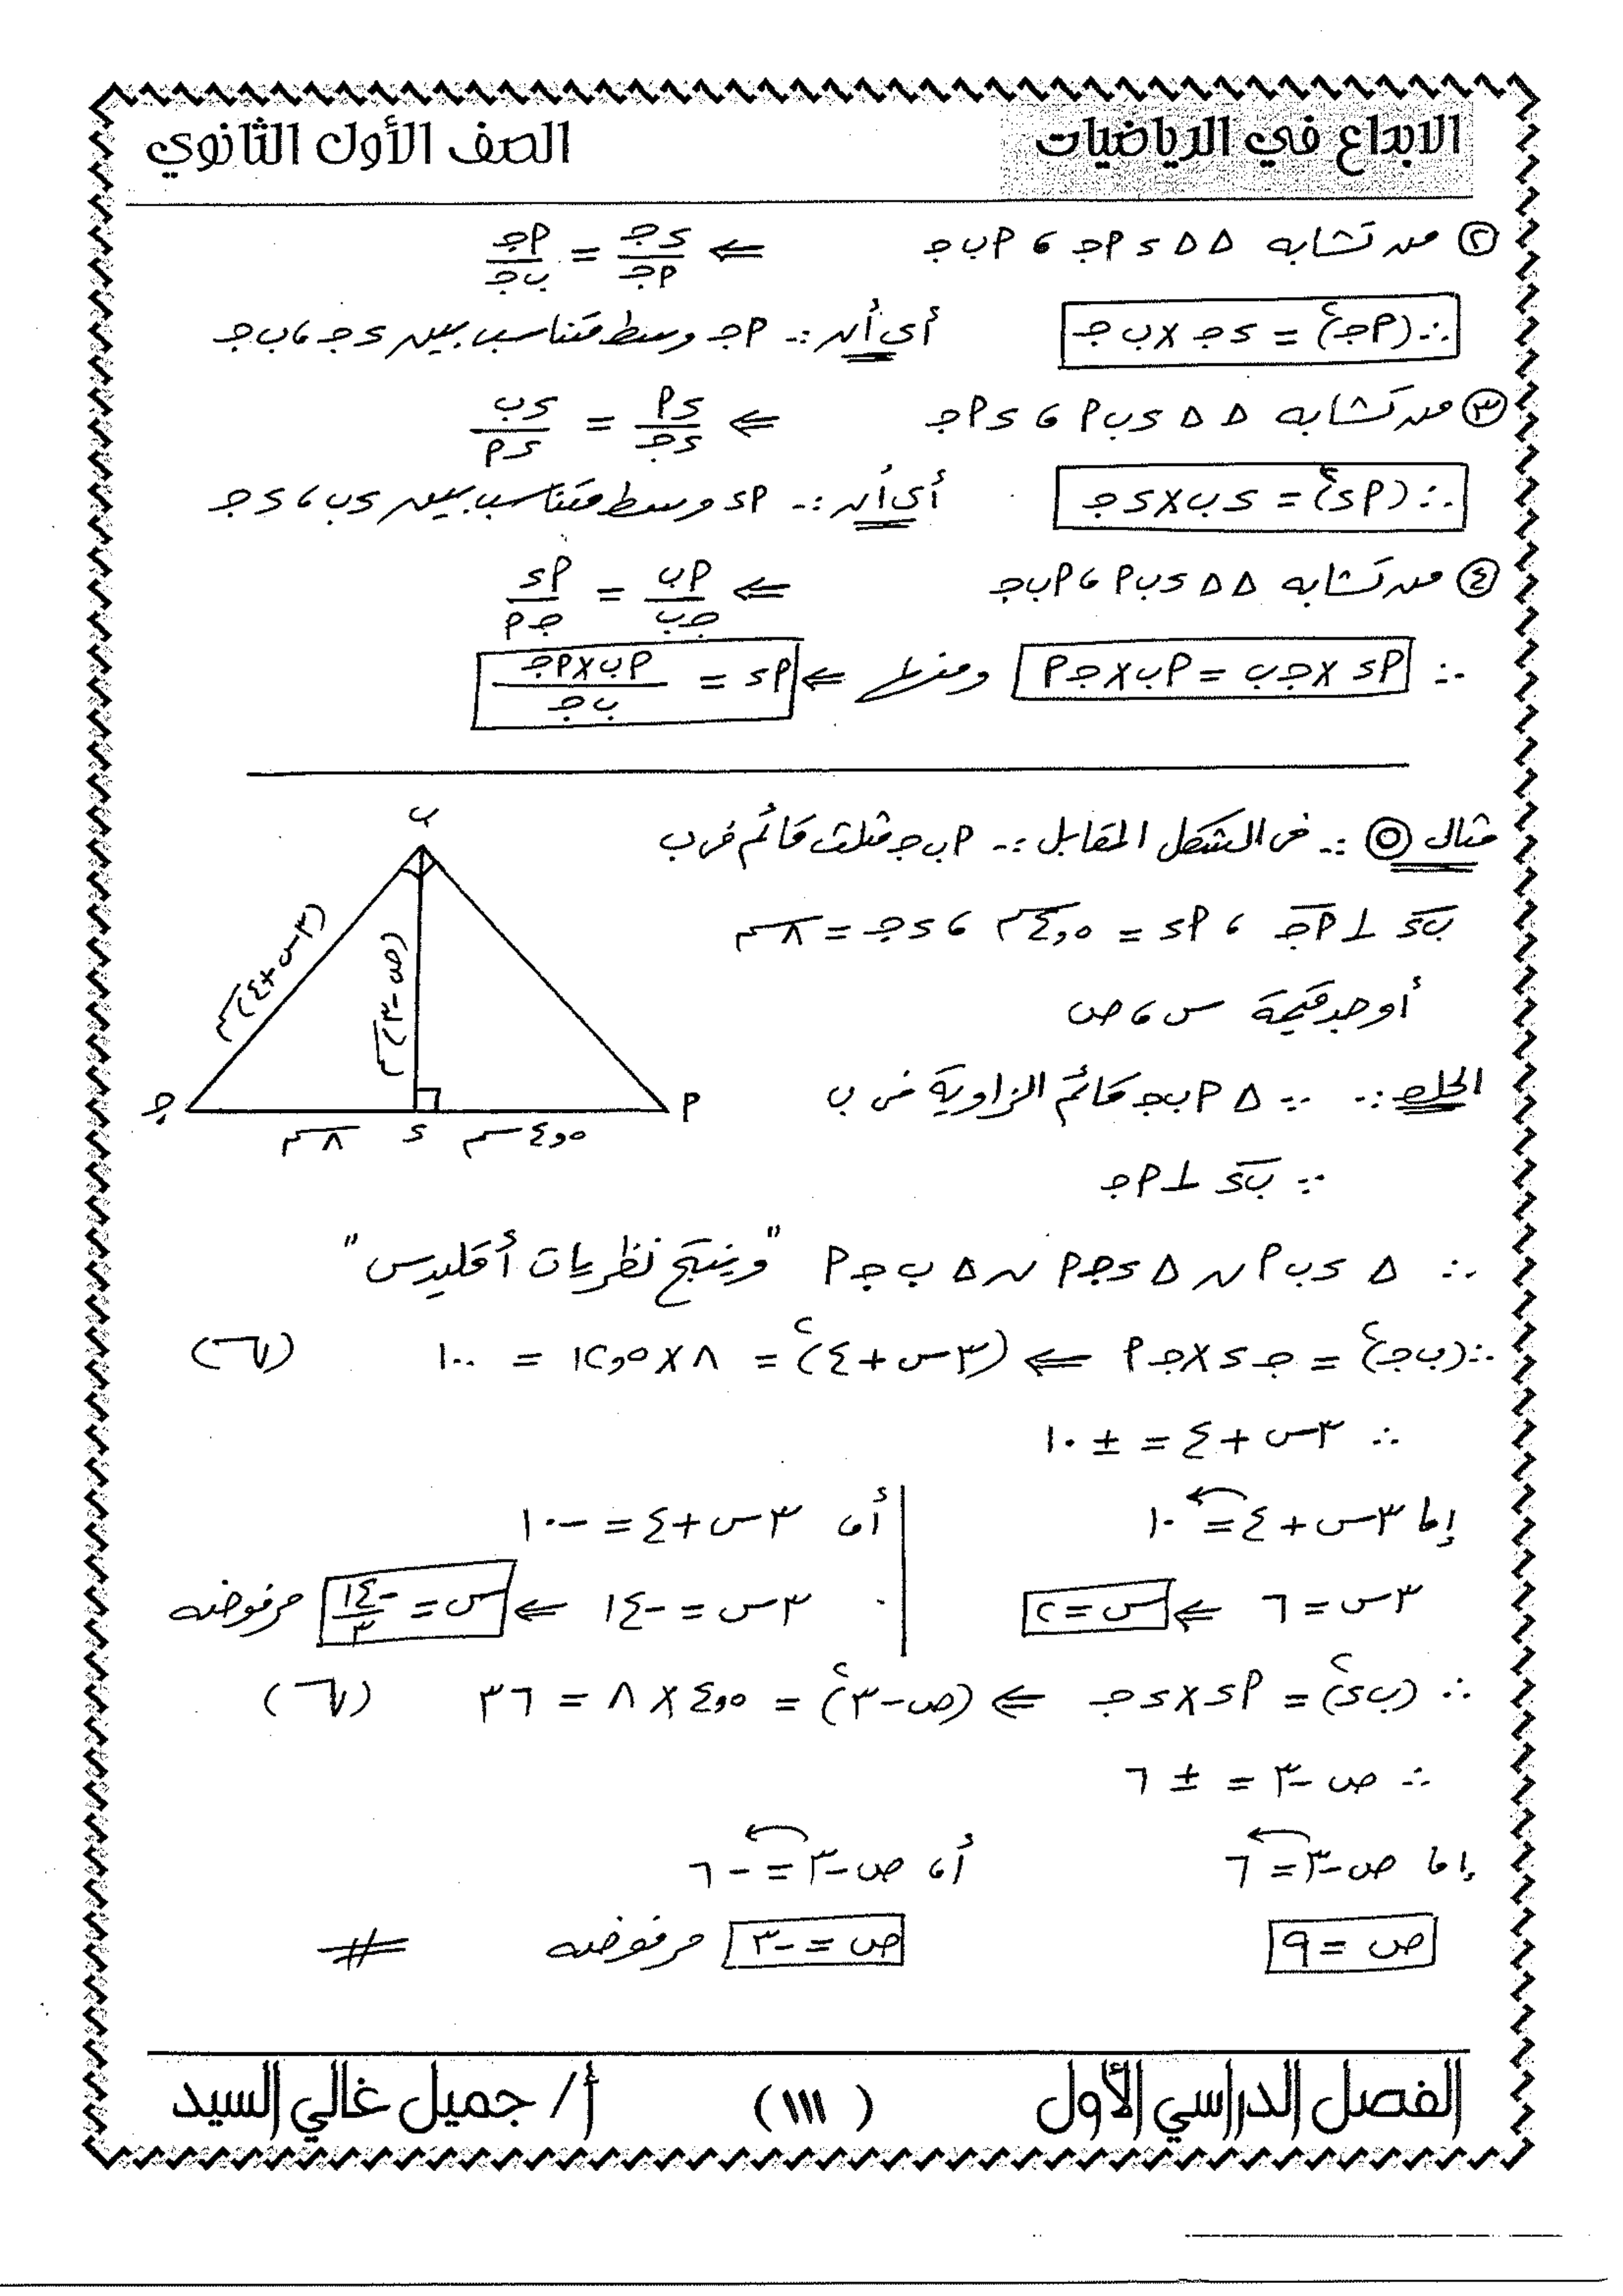 الابداع في الرياضيات
الصف الأول الثانوي
② من تشابه △△ ء أ جـ ، أ ب جـ ⇐ ء جـ / أ جـ = أ جـ / ب جـ
∴ (أ جـ)² = ء جـ × ب جـ أي أن :- أ جـ وسط متناسب بين ء جـ ، ب جـ
③ من تشابه △△ ء ب أ ، ء أ جـ ⇐ ء أ / ء جـ = ء ب / ء أ
∴ (أ ء)² = ء ب × ء جـ أي أن :- أ ء وسط متناسب بين ء ب ، ء جـ
④ من تشابه △△ ء ب أ ، أ ب جـ ⇐ أ ب / جـ ب = أ ء / جـ أ
∴ أ ء × جـ ب = أ ب × جـ أ ومنها ⇐ أ ء = أ ب × أ جـ / ب جـ
مثال ⑤ :- في الشكل المقابل :- أ ب جـ مثلث قائم في ب
ب ء ⊥ أ جـ ، أ ء = ٤,٥ سم ، ء جـ = ٨ سم
أوجد قيمة س ، ص
ب
(٣س + ٤) سم
(ص - ٣) سم
جـ
ء
أ
٨ سم
٤,٥ سم
الحل :- ∵ △ أ ب جـ قائم الزاوية في ب
∵ ب ء ⊥ أ جـ
∴ △ ء ب أ ~ △ ء جـ أ ~ △ ب جـ أ "وينتج نظريات أقليدس"
∴ (ب جـ)² = جـ ء × جـ أ ⇐ (٣س + ٤)² = ٨ × ١٢,٥ = ١٠٠ (√)
∴ ٣س + ٤ = ± ١٠
إما ٣س + ٤ = ١٠
٣س = ٦ ⇐ س = ٢
أو ٣س + ٤ = -١٠
٣س = -١٤ ⇐ س = -١٤ / ٣ مرفوضه
∴ (ب ء)² = أ ء × ء جـ ⇐ (ص - ٣)² = ٤,٥ × ٨ = ٣٦ (√)
∴ ص - ٣ = ± ٦
إما ص - ٣ = ٦
ص = ٩
أو ص - ٣ = - ٦
ص = -٣ مرفوضه #
الفصل الدراسي الأول
( ١١١ )
أ / جميل غالي السيد